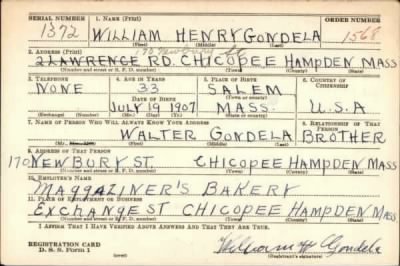 SERIAL NUMBER 1. NAME (Print) ORDER NUMBER
1372 WILLIAM HENRY GONDELA 1568
(First) (Middle) (Last)
170 Newbury St
2. ADDRESS (Print)
2 LAWRENCE RD. CHICOPEE HAMPDEN MASS
(Number and street or R. F. D. number) (Town) (County) (State)
3. TELEPHONE 4. AGE IN YEARS 5. PLACE OF BIRTH 6. COUNTRY OF CITIZENSHIP
NONE 33 SALEM
DATE OF BIRTH (Town or county)
JULY 19 1907 MASS. U.S.A
(Exchange) (Number) (Mo.) (Day) (Yr.) (State or country)
7. NAME OF PERSON WHO WILL ALWAYS KNOW YOUR ADDRESS 8. RELATIONSHIP OF THAT PERSON
WALTER GONDELA BROTHER
(First) (Middle) (Last)
9. ADDRESS OF THAT PERSON
170 NEWBURY ST. CHICOPEE HAMPDEN MASS
(Number and street or R. F. D. number) (Town) (County) (State)
10. EMPLOYER'S NAME
MAGGAZINER'S BAKERY
11. PLACE OF EMPLOYMENT OR BUSINESS
EXCHANGE ST CHICOPEE HAMPDEN MASS
(Number and street or R. F. D. number) (Town) (County) (State)
I AFFIRM THAT I HAVE VERIFIED ABOVE ANSWERS AND THAT THEY ARE TRUE.
REGISTRATION CARD
D. S. S. Form 1
William H Gondela
(Registrant's signature)